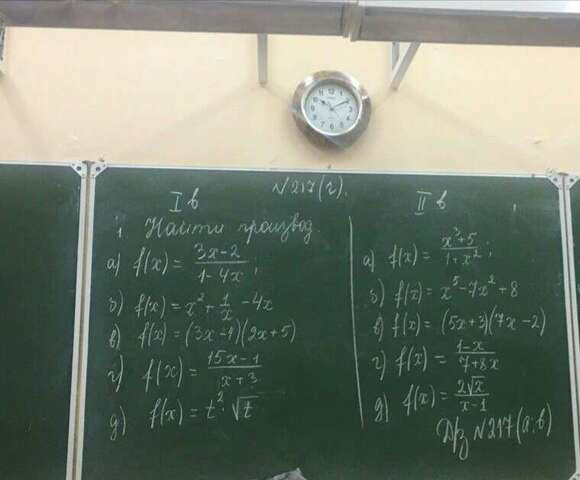 №217(г).
I в
1 Найти производ.
а) f(x) = (3x-2)/(1-4x);
б) f(x) = x² + 1/x - 4x
в) f(x) = (3x-4)(2x+5)
г) f(x) = (15x-1)/(x+3)
д) f(x) = t²·√t
II в
а) f(x) = (x³+5)/(1+x²);
б) f(x) = x⁵-7x²+8
в) f(x) = (5x+3)(7x-2)
г) f(x) = (1-x)/(7+8x)
д) f(x) = 2√x/(x-1)
Д/з №217(а,в)
12
1
2
3
4
5
6
7
8
9
10
11